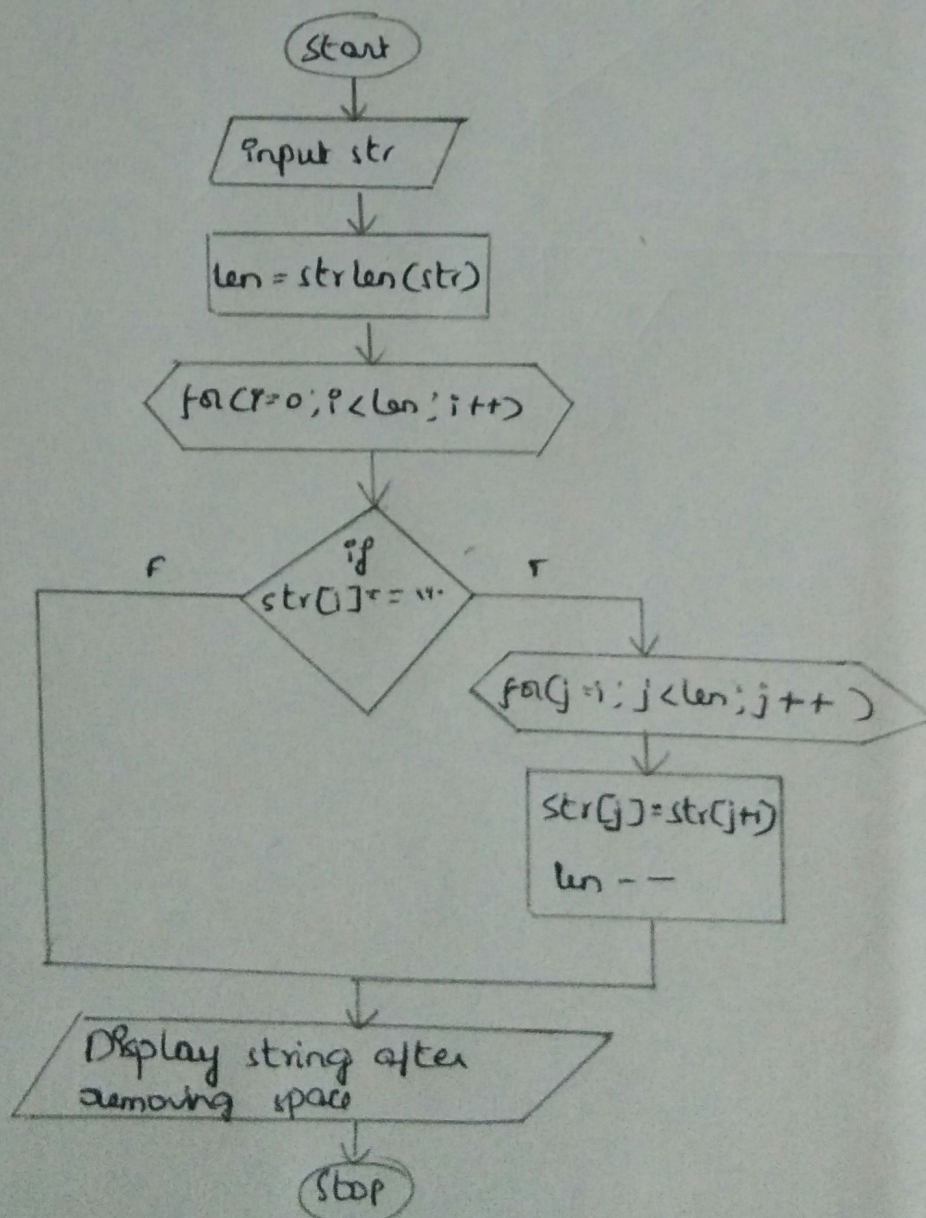 Start
input str
len = strlen(str)
for(i=0; i<len; i++)
if
str[i] == " "
F
T
for(j=i; j<len; j++)
str[j]=str[j+1)
len --
Display string after
removing space
Stop